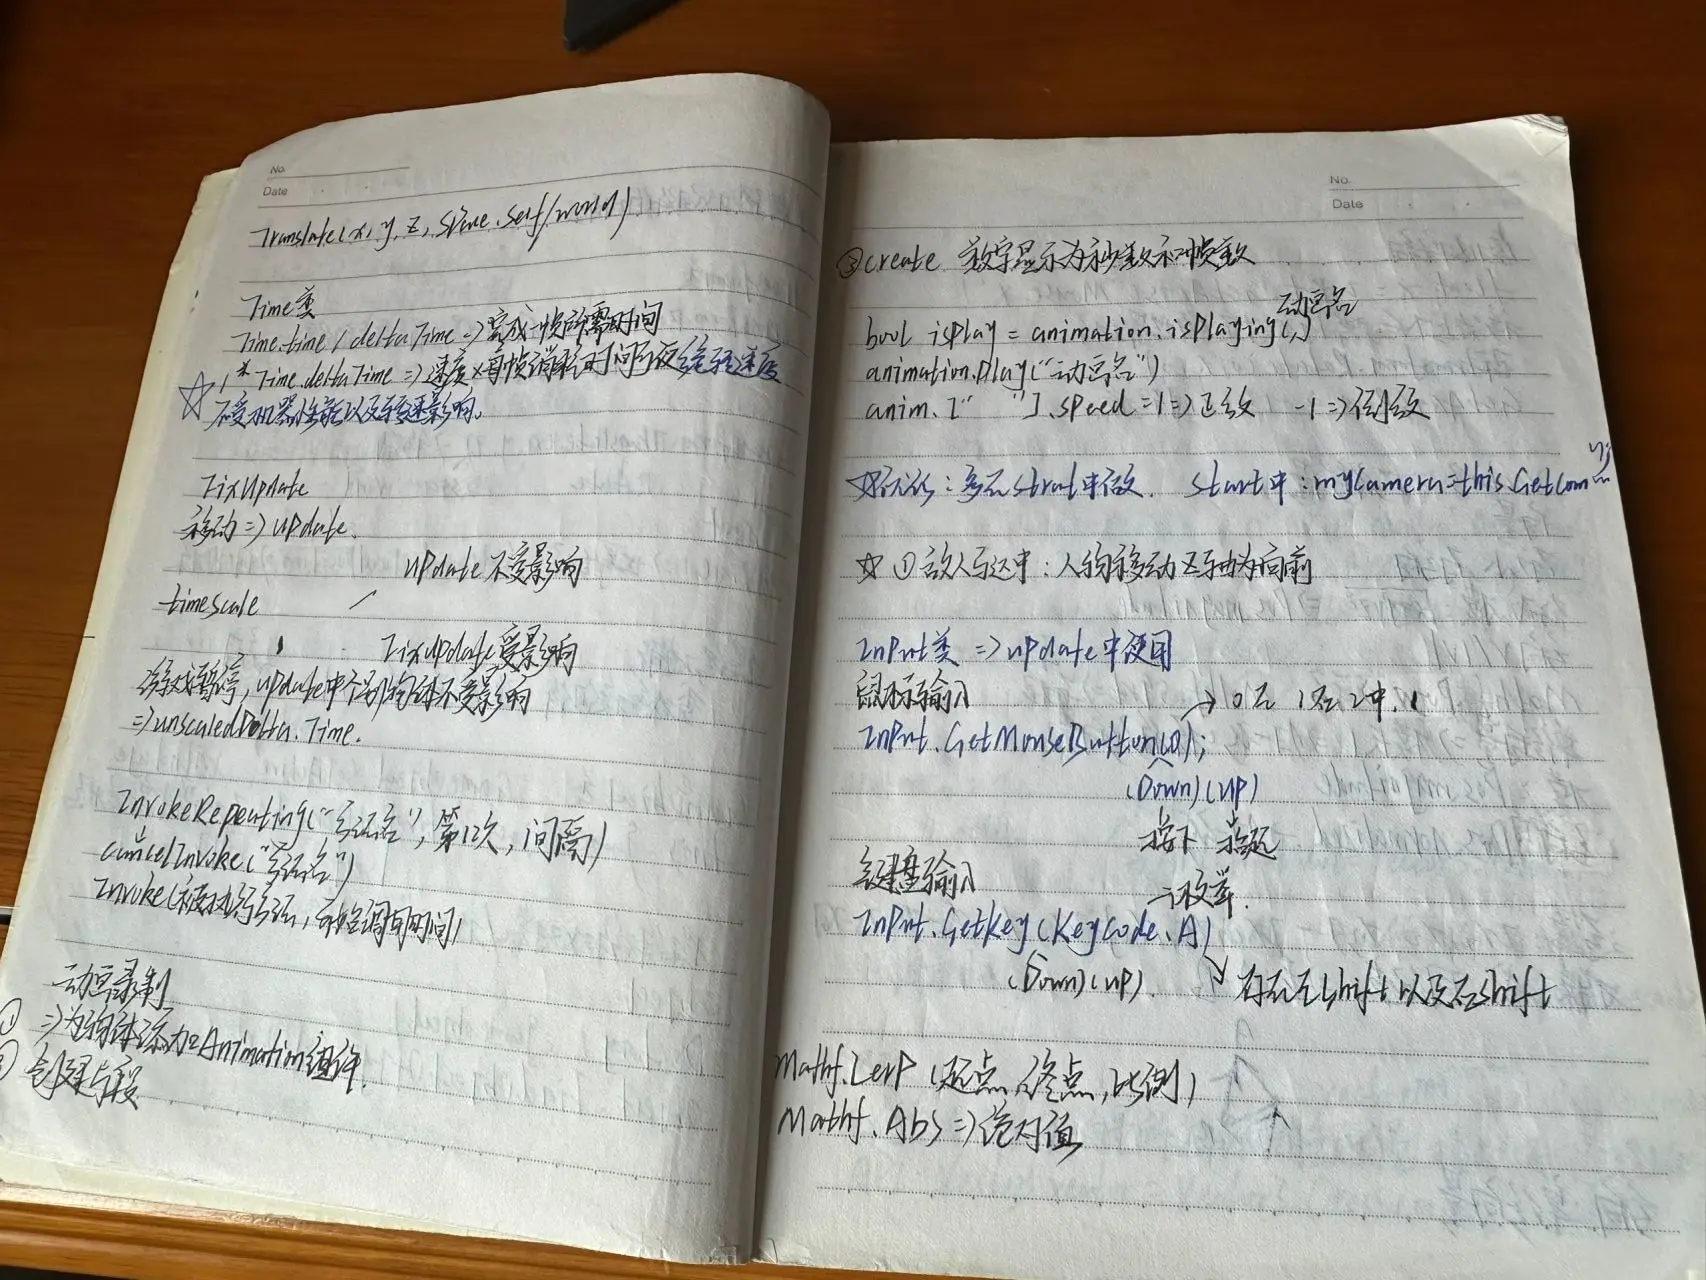 No.
Date
Translate(x, y, z, space.self/world)
Time类
Time.time / deltaTime => 完成一帧所需时间
1 * Time.deltaTime => 速度×每帧消耗时间
不受机器性能以及影响。
FixUpdate
移动 => update.
update 不受影响
timescale
FixUpdate受影响
游戏暂停,update中个别物体不受影响
=> unscaledDelta.Time.
InvokeRepeating("方法名", 第12次, 间隔)
cancelInvoke("方法名")
Invoke(被执行方法, 开始调用时间)
动画录制
① =>为物体添加Animation组件.
创建片段
No.
Date
③ create 数字显示为秒数和帧数
动画名
bool isplay = animation.isPlaying(,)
animation.play("动画名")
anim.[" "].speed = 1 => 正放 -1 => 倒放
☆ : 多在strat中做. start中 : myCamera=this.Getcom
☆ ① 敌人写这中 : 人物移动Z轴为向前
InPut类 => update中使用
鼠标输入 → 0左 1右 2中.
InPut.GetMouseButton(0);
(Down) (up)
按下 抬起
键盘输入
枚举.
InPut.Getkey(Keycode.A)
(Down) (up). 存在左shift以及右shift
Mathf.LerP (起点, 终点, 比例)
Mathf.Abs => 绝对值